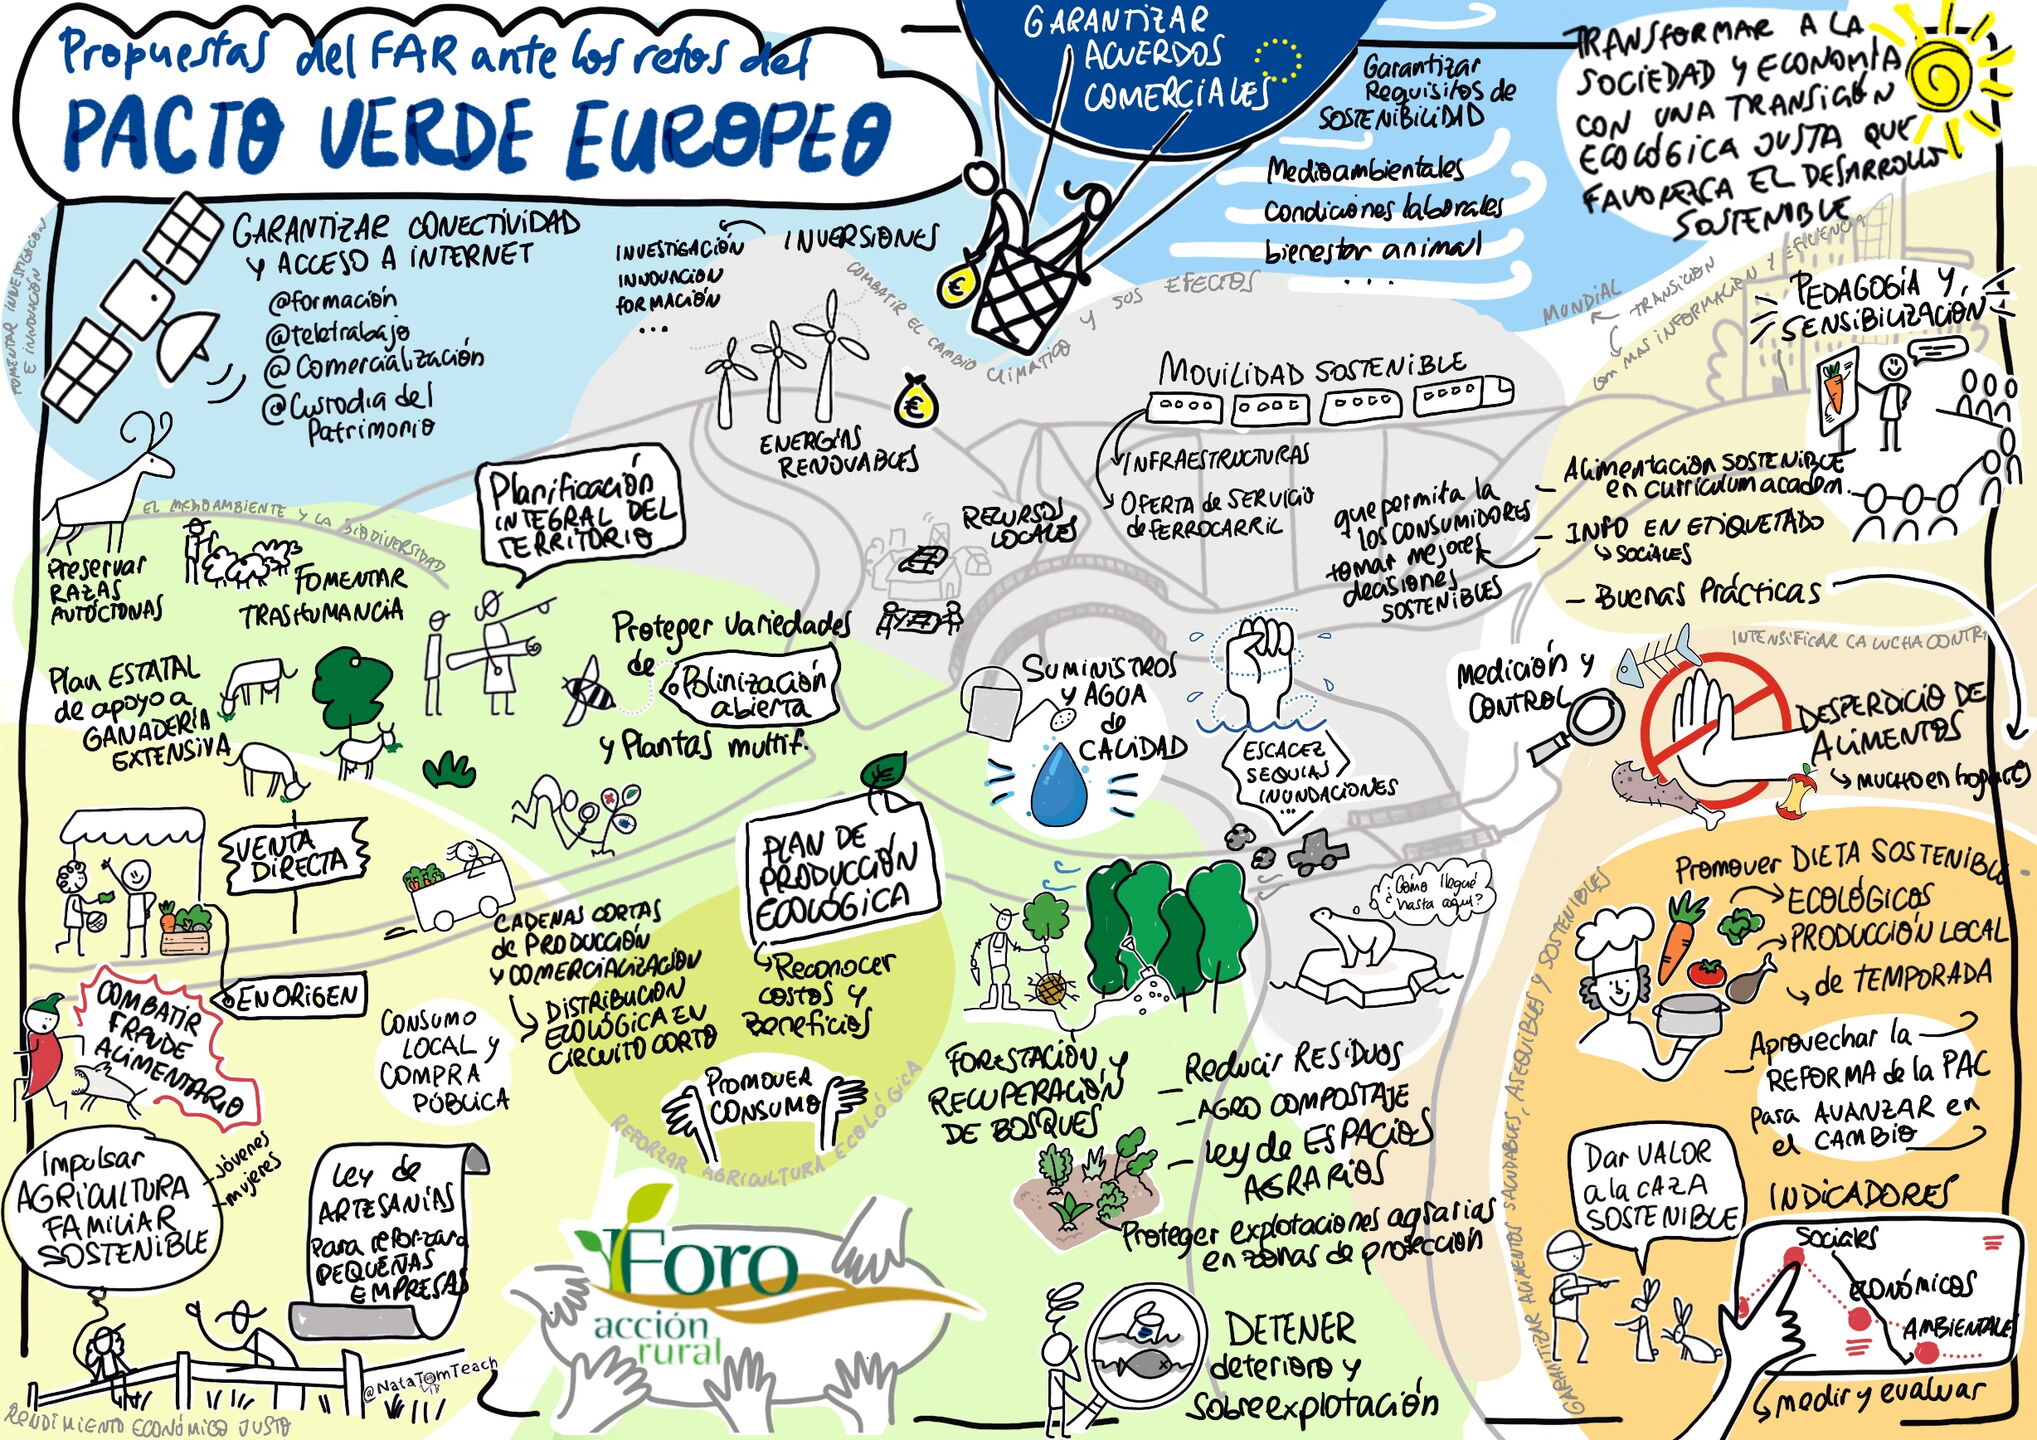 Propuestas del FAR ante los retos del
PACTO VERDE EUROPEO
GARANTIZAR
ACUERDOS
COMERCIALES
Garantizar
Requisitos de
SOSTENIBILIDAD
Medioambientales
Condiciones laborales
bienestar animal
...
TRANSFORMAR A LA
SOCIEDAD Y ECONOMÍA
CON UNA TRANSICIÓN
ECOLÓGICA JUSTA QUE
FAVOREZCA EL DESARROLLO
SOSTENIBLE
FOMENTAR INVESTIGACIÓN
E INNOVACIÓN
GARANTIZAR CONECTIVIDAD
Y ACCESO A INTERNET
@formación
@teletrabajo
@Comercialización
@Custodia del
Patrimonio
INVERSIONES
INVESTIGACIÓN
INNOVACIÓN
FORMACIÓN
...
COMBATIR EL CAMBIO CLIMÁTICO Y SUS EFECTOS
€
€
ENERGÍAS
RENOVABLES
MOVILIDAD SOSTENIBLE
INFRAESTRUCTURAS
OFERTA de SERVICIO
de FERROCARRIL
RECURSOS
LOCALES
MUNDIAL
TRANSICIÓN
CON MAS INFORMACIÓN Y EFICIENCIA
PEDAGOGÍA Y
SENSIBILIZACIÓN
Alimentación SOSTENIBLE
en currículum academ.
- INFO EN ETIQUETADO
SOCIALES
- Buenas Prácticas
que permita la
los CONSUMIDORES
tomar mejores
decisiones
SOSTENIBLES
EL MEDIOAMBIENTE Y LA BIODIVERSIDAD
Preservar
RAZAS
AUTÓCTONAS
FOMENTAR
TRASHUMANCIA
Planificación
INTEGRAL DEL
TERRITORIO
Plan ESTATAL
de apoyo a
GANADERÍA
EXTENSIVA
Proteger variedades
de
Polinización
abierta
y Plantas multif.
SUMINISTROS
Y AGUA
de
CALIDAD
ESCACEZ
SEQUIAS
INUNDACIONES
...
Medición y
CONTROL
INTENSIFICAR LA LUCHA CONTRA
DESPERDICIO DE
ALIMENTOS
MUCHO en hogares
VENTA
DIRECTA
EN ORIGEN
CADENAS CORTAS
de PRODUCCIÓN
Y COMERCIALIZACIÓN
DISTRIBUCIÓN
ECOLÓGICA EN
CIRCUITO CORTO
PLAN DE
PRODUCCIÓN
ECOLÓGICA
Reconocer
costos y
Beneficios
¿Cómo llegué
hasta aquí?
Promover DIETA SOSTENIBLE
ECOLÓGICOS
PRODUCCIÓN LOCAL
de TEMPORADA
Aprovechar la
REFORMA de la PAC
para AVANZAR en
el CAMBIO
COMBATIR
FRAUDE
ALIMENTARIO
CONSUMO
LOCAL y
COMPRA
PÚBLICA
PROMOVER
CONSUMO
REFORZAR AGRICULTURA ECOLÓGICA
FORESTACIÓN Y
RECUPERACIÓN
DE BOSQUES
- Reducir RESIDUOS
- AGRO COMPOSTAJE
- Ley de ESPACIOS
AGRARIOS
Proteger explotaciones agrarias
en zonas de protección
GARANTIZAR ALIMENTOS SALUDABLES, ASEQUIBLES Y SOSTENIBLES
Dar VALOR
a la CAZA
SOSTENIBLE
INDICADORES
Sociales
ECONÓMICOS
AMBIENTALES
medir y evaluar
Impulsar
AGRICULTURA
FAMILIAR
SOSTENIBLE
-jóvenes
-mujeres
Ley de
ARTESANÍAS
Para reforzar a
PEQUEÑAS
EMPRESAS
Foro
acción
rural
DETENER
deterioro y
Sobreexplotación
@NataTomTeach
RENDIMIENTO ECONÓMICO JUSTO